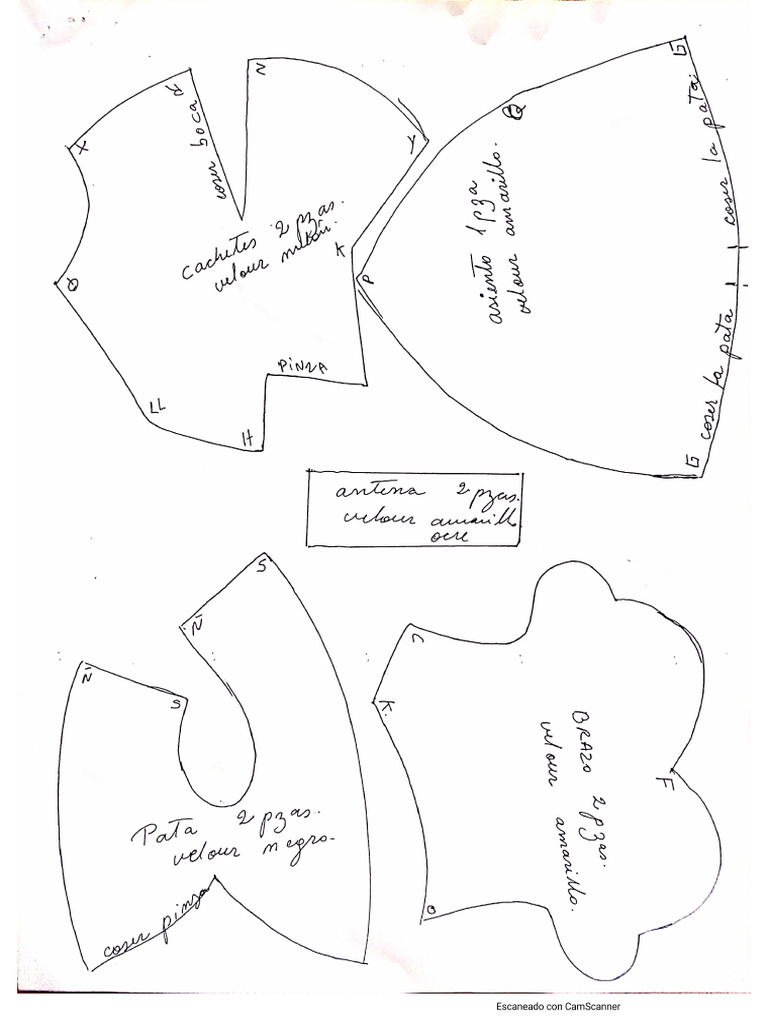 R
N
X
coser boca
Y
cachetes 2 pzas.
velour melón.
K
Q
PINZA
LL
H
G
Q
coser la pata
asiento 1 pza
velour amarillo.
P
coser la pata
G
antena 2 pzas.
velour amarillo
ocre
S
Ñ
Ñ
S
Pata 2 pzas.
velour negro.
coser pinza
J
K.
BRAZO 2 pzas.
velour amarillo.
F
O
Escaneado con CamScanner